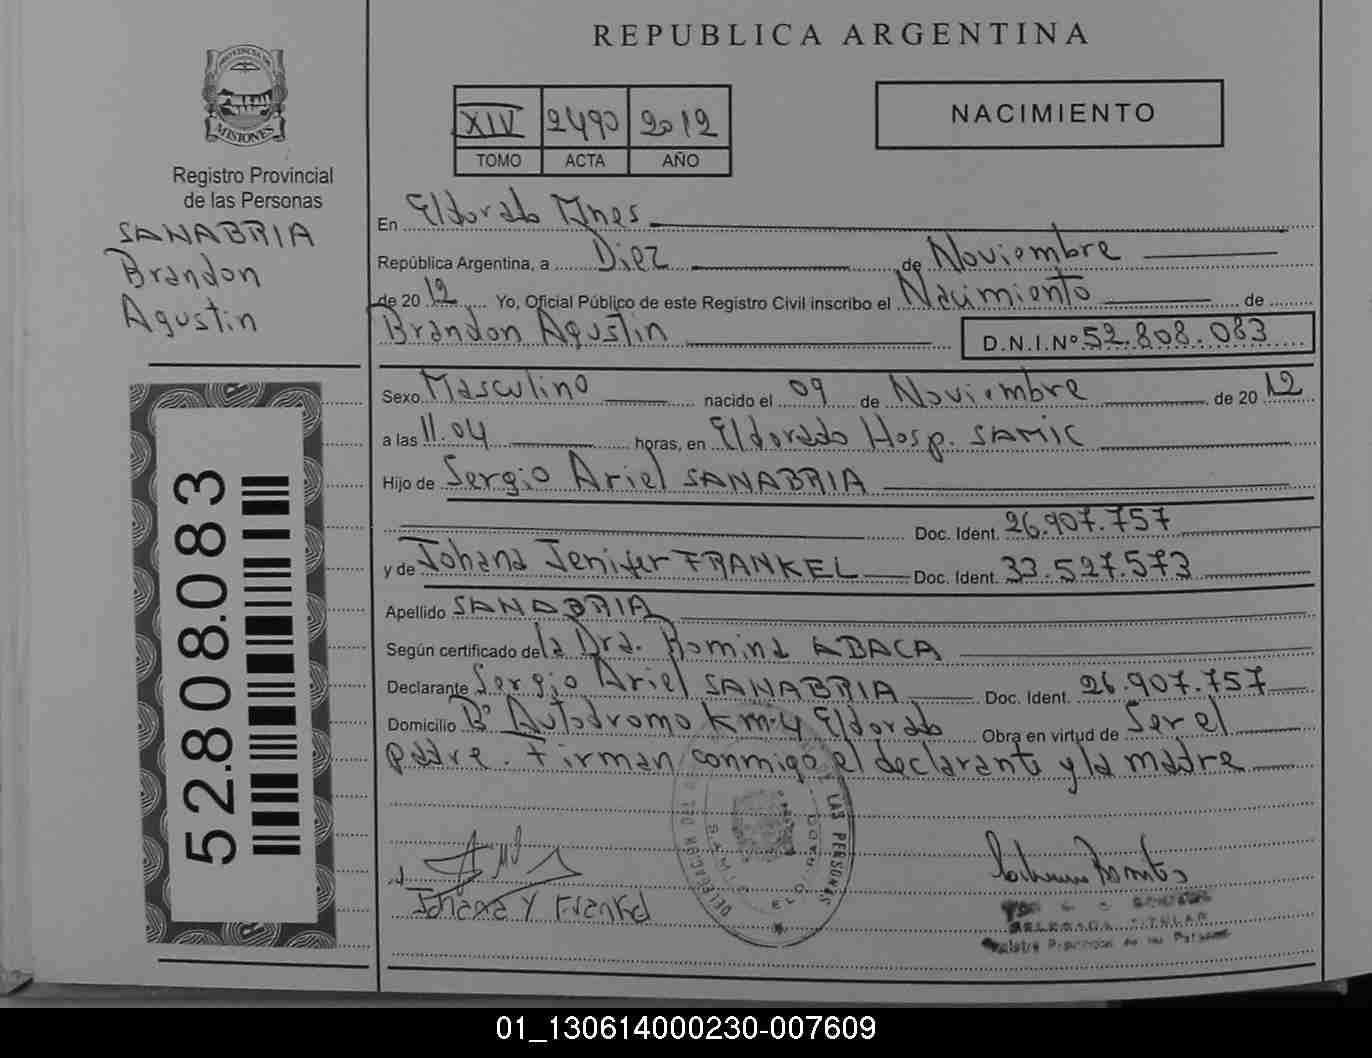 REPUBLICA ARGENTINA
PROVINCIA DE
MISIONES
Registro Provincial
de las Personas
SANABRIA
Brandon
Agustin
52.808.083
XIV 2490 2012
TOMO ACTA AÑO
NACIMIENTO
En Eldorado Mnes
República Argentina, a Diez de Noviembre
de 20 12 Yo, Oficial Público de este Registro Civil inscribo el Nacimiento de
Brandon Agustin D.N.I.Nº 52.808.083
Sexo Masculino nacido el 09 de Noviembre de 20 12
a las 11.04 horas, en Eldorado Hosp. SAMIC
Hijo de Sergio Ariel SANABRIA
Doc. Ident. 26.907.757
y de Johana Jenifer FRANKEL Doc. Ident. 33.527.573
Apellido SANABRIA
Según certificado de la Dra. Romina ABACA
Declarante Sergio Ariel SANABRIA Doc. Ident. 26.907.757
Domicilio Bº Autodromo Km-4 Eldorado Obra en virtud de Ser el
padre. Firman conmigo el declarante y la madre
DELEGACION DEL REGISTRO LAS PERSONAS
ELDORADO
Johana Y Frankel
DELEGADA TITULAR
Registro Provincial de las Personas
01_130614000230-007609